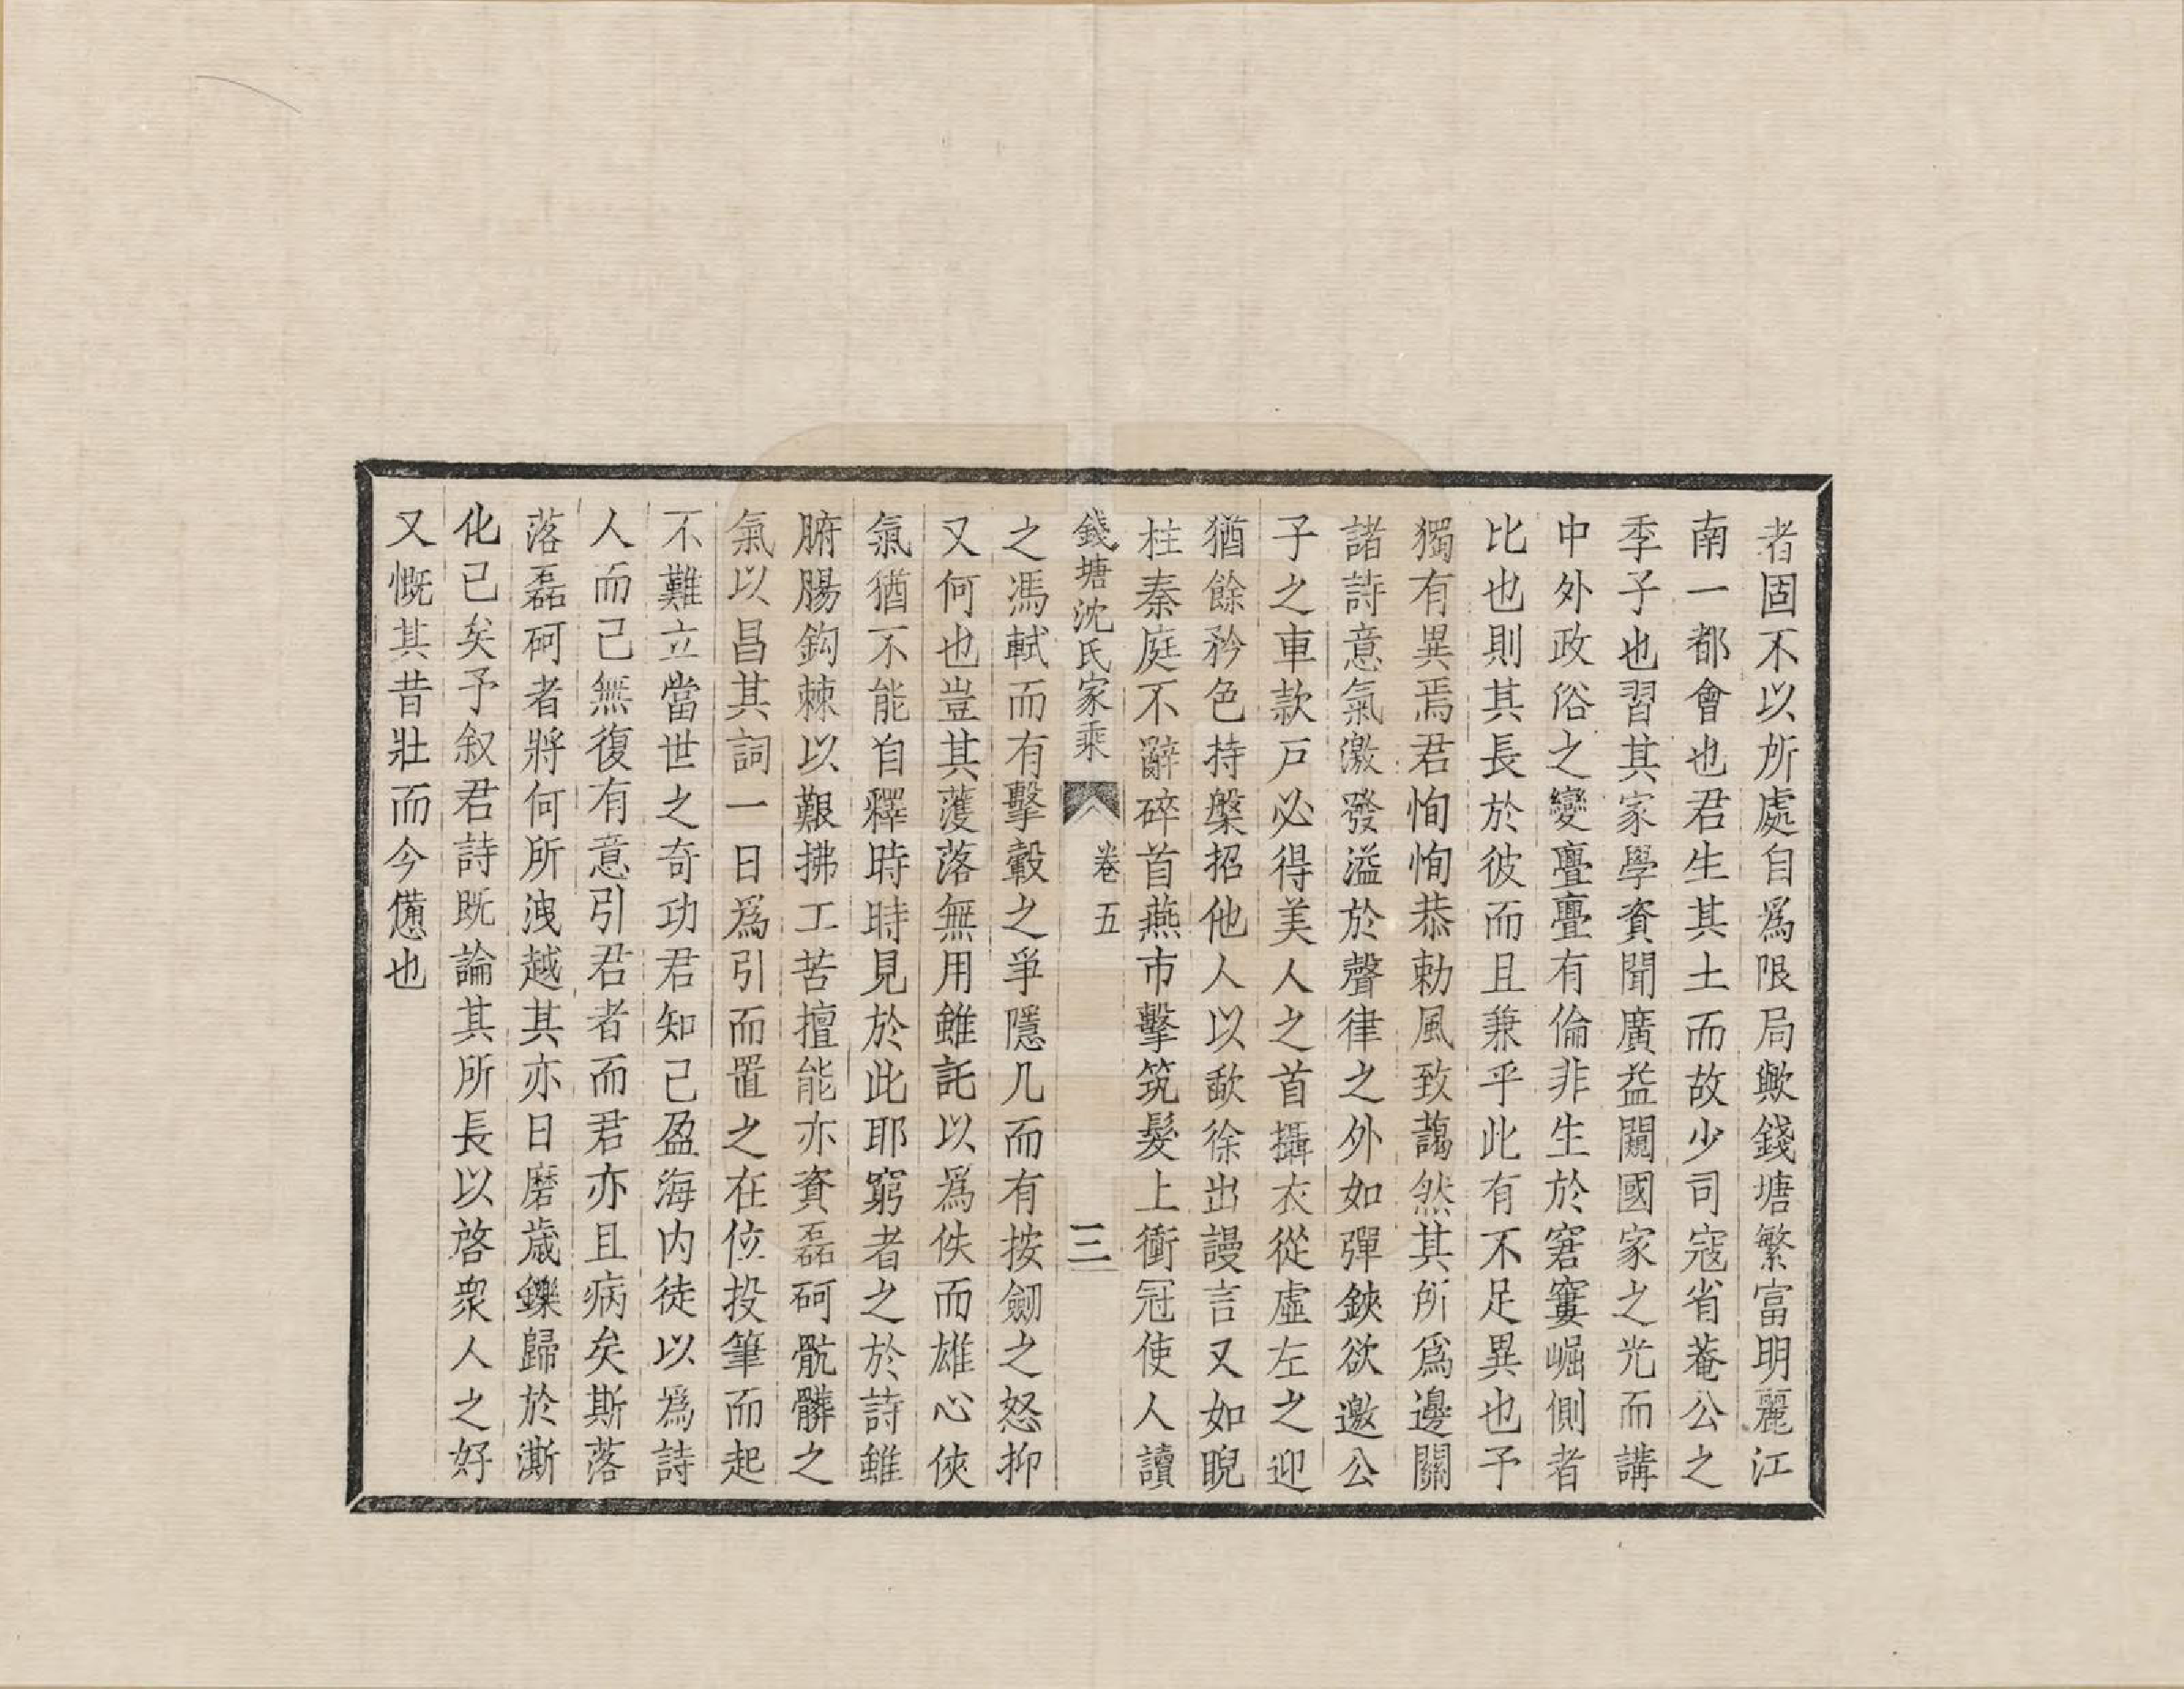 者固不以所處自爲限局歟錢塘繁富明麗江
南一都會也君生其土而故少司寇省菴公之
季子也習其家學資聞廣益闚國家之光而講
中外政俗之變亹亹有倫非生於窘窶崛側者
比也則其長於彼而且兼乎此有不足異也予
獨有異焉君恂恂恭勅風致藹然其所爲邊關
諸詩意氣激發溢於聲律之外如彈鋏欲邀公
子之車款戶必得美人之首攝衣從虛左之迎
猶餘矜色持槃招他人以歃徐出謾言又如睨
柱秦庭不辭碎首燕市擊筑髮上衝冠使人讀
錢塘沈氏家乘 卷五 三
之馮軾而有擊轂之爭隱几而有按劒之怒抑
又何也豈其濩落無用雖託以爲佚而雄心俠
氣猶不能自釋時時見於此耶窮者之於詩雖
腑腸鈎棘以艱拂工苦擅能亦資磊砢骯髒之
氣以昌其詞一日爲引而置之在位投筆而起
不難立當世之奇功君知己盈海内徒以爲詩
人而已無復有意引君者而君亦且病矣斯落
落磊砢者將何所洩越其亦日磨歲鑠歸於澌
化已矣予叙君詩既論其所長以啓衆人之好
又慨其昔壯而今憊也